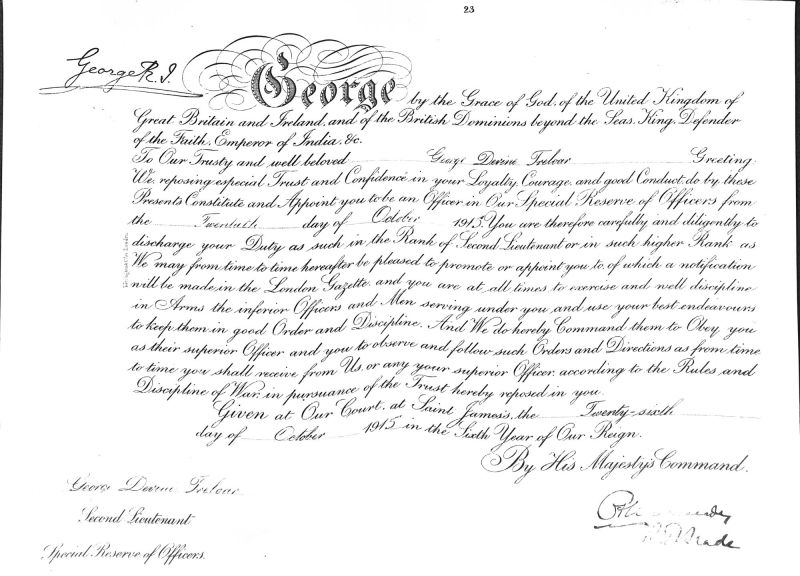 23
George R.I.
George by the Grace of God, of the United Kingdom of
Great Britain and Ireland, and of the British Dominions beyond the Seas, King, Defender
of the Faith, Emperor of India, &c.
To Our Trusty and well beloved George Devine Treloar Greeting.
We, reposing especial Trust and Confidence in your Loyalty, Courage, and good Conduct, do by these
Presents Constitute and Appoint you to be an Officer in Our Special Reserve of Officers from
the Twentieth day of October 1915. You are therefore carefully and diligently to
discharge your Duty as such in the Rank of Second Lieutenant or in such higher Rank as
We may from time to time hereafter be pleased to promote or appoint you to, of which a notification
will be made in the London Gazette, and you are at all times to exercise and well discipline
in Arms the inferior Officers and Men serving under you and use your best endeavours
to keep them in good Order and Discipline. And We do hereby Command them to Obey you
as their superior Officer and you to observe and follow such Orders and Directions as from time
to time you shall receive from Us, or any your superior Officer, according to the Rules and
Discipline of War, in pursuance of the Trust hereby reposed in you.
Given at Our Court, at Saint James's, the Twenty-sixth
day of October 1915 in the Sixth Year of Our Reign.
By His Majesty's Command.
George Devine Treloar
Second Lieutenant
Special Reserve of Officers.